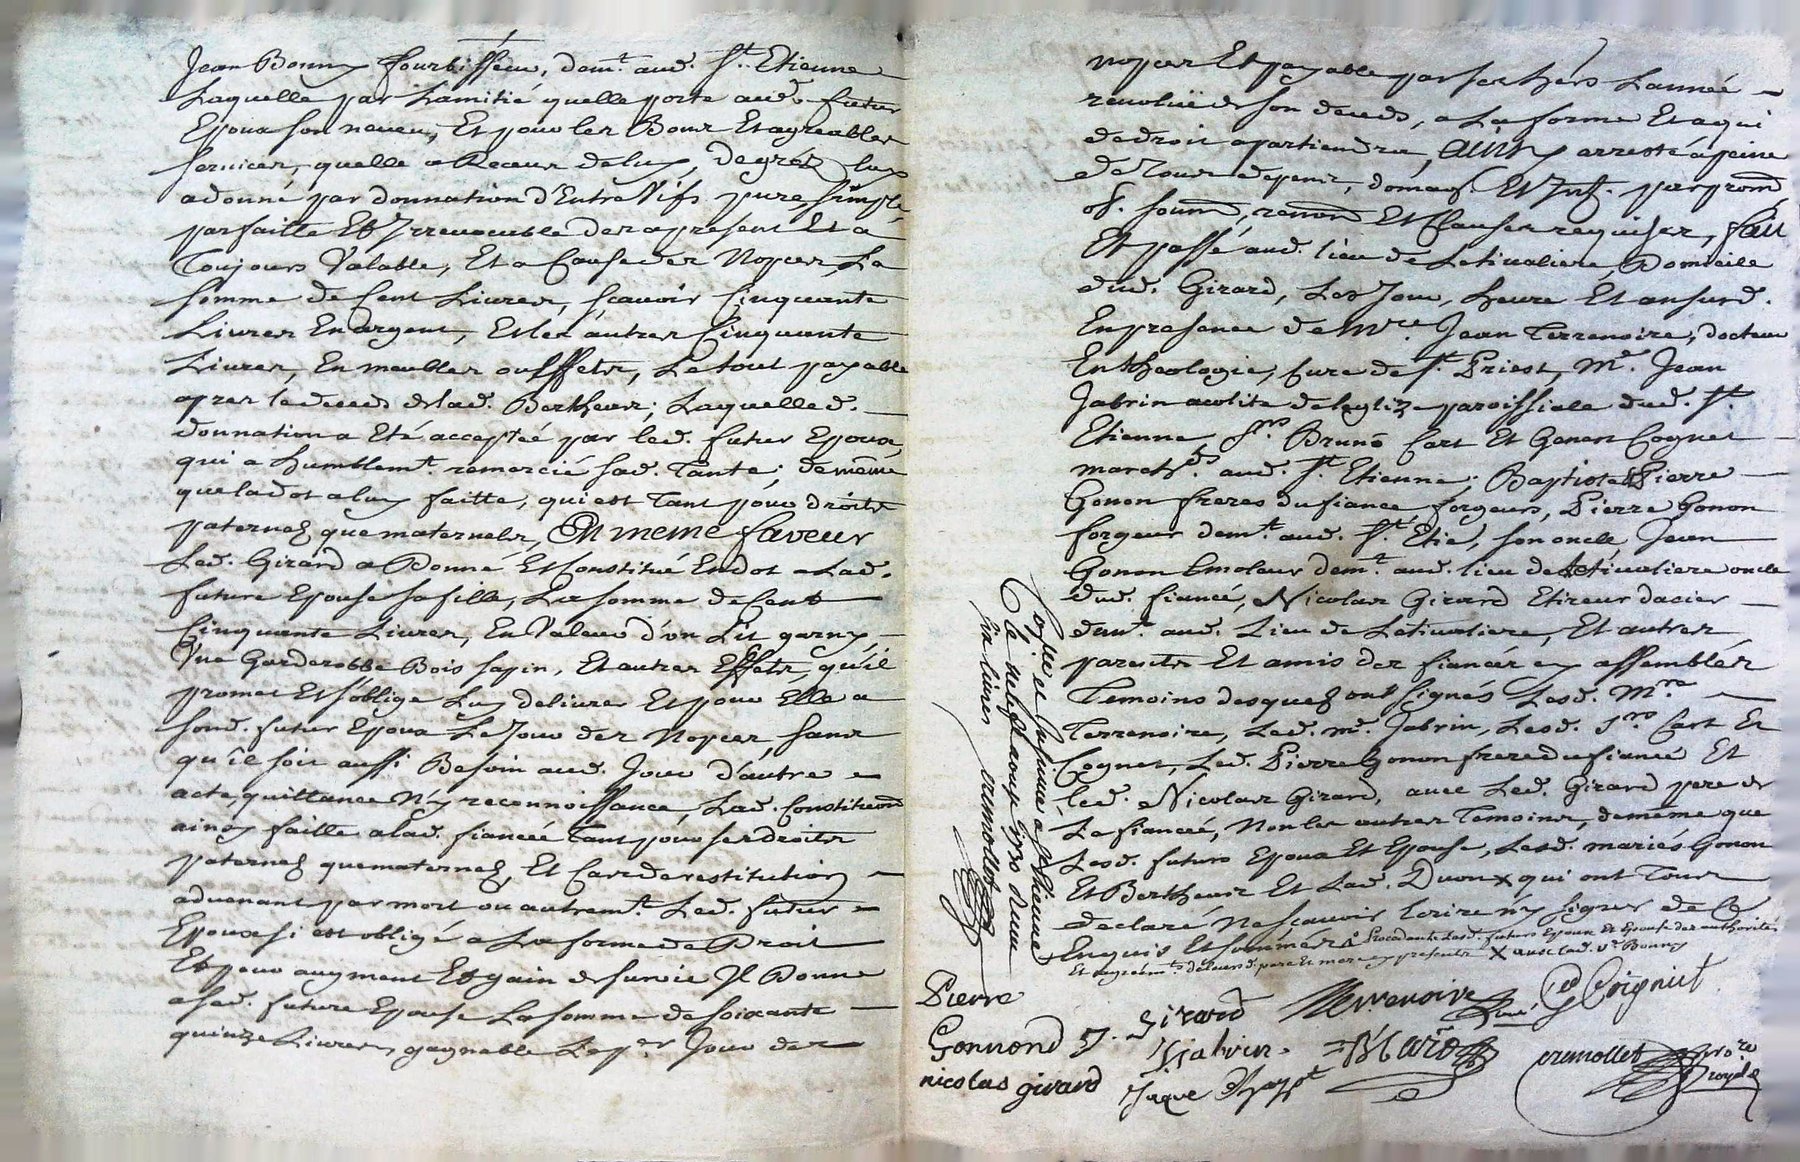 Jean Bonny fourbisseur, demt. aud. St. Etienne
Laquelle par Lamitié quelle porte aud. futur
Epoux son neveu, Et pour les Bons Et agreables
services, quelle a Receus de luy, de gréz luy
a donné par donnation d'Entre Vifs pure, simple,
parfaitte Et Irrevocable des a present Et a
Toujours Valable, Et a Cause des Nopces, La
somme de Cent Livres, scavoir Cinquante
Livres En argent, Et les autres Cinquante
Livres, En meubles ou Effets, Le tout payable
apres le deceds de lad. Bertheas; Laquelle d.
donnation a Eté acceptée par led. futur Epoux,
qui a humblemt. remercié sad. Tante; de même
que la dot a luy faitte, qui est Tant pour droits
paternels que maternels, En meme faveur
Led. Girard a Donné Et Constitué En dot a Lad.
future Epouse sa fille, La somme de Cent
Cinquante Livres, En Valeur d'un Lit garny,
Une Garderobbe Bois sapin, Et autres Effets, qu'il
promet Et s'oblige Luy delivrer Et pour Elle a
sond. futur Epoux Le Jour des Nopces, sans
qu'il soit aussi Besoin aud. Jour d'autre
acte, quittance N'y reconnoissance, Lad. Constitution
ainsy faitte a lad. fiancée Tant pour ses droits
paternels que maternels, Et Cas de restitution
advenant par mort ou autremt. Led. futur
Epoux si est obligé a La forme de Droit
Et pour augment Et gain de survie Il Donne
a sad. future Epouse La somme de soixante
quinze Livres, gagnable Le per Jour des
nopces Et payable par ses hers L'année
revoluë de son deceds, a La forme Et a qui
de droit apartiendra, Ainsy arresté a peine
de Tous depens, domag. Et Int. par prom
ob. soum, renon Et Clauses requises, fait
Et passé aud. lieu de Letivaliere, Domicile
dud. Girard, Les Jour, heure Et an susd.
En presence de Mre. Jean Terrenoire, docteur
En theologie, Cure de St. Priest, Me. Jean
Jabrin acolite de leglize paroissiale dud. St.
Etienne, Srs. Bruno Cart Et Gonon Cognet
marchds. aud. St. Etienne; Baptiste & Pierre
Gonon freres du fiancé forgeurs, Pierre Gonon
forgeur demt. aud. St. Etie, son oncle Jean
Gonon Emoleur demt. aud. lieu de Letivaliere oncle
dud. fiancé, Nicolas Girard Etireur dacier
demt. aud. Lieu de Letivaliere, Et autres
parents Et amis des fiancés y assemblés
Temoins desquels ont signés Lesd. Mre
Terrenoire, Led. me. Jabrin, Lesd. srs Cart Et
Cognet, Led. Pierre Gonon frere du fiancé Et
led. Nicolas Girard, avec Led. Girard pere de
La fiancée, Non les autres Temoins, de même que
Lesd. futurs Epoux Et Epouse, Lesd. mariés Gonon
Et Bertheas Et Lad. Duon x qui ont Tous
declaré Ne scavoir Ecrire n'y signer de Ce
Enquis Et sommés
Procedants Lesd. futurs Epoux Et Epouse des authorités
Et agreemts de leurd. pere Et mere y presents x avec lad. ve Bonny
Controllé et Insinué a St Etienne
six livres cremollet
Pierre
Gonnond J. Girard Terrenoire Curé G Coignet
Jabrin B Cart cremollet nore
nicolas girard Jaque royal